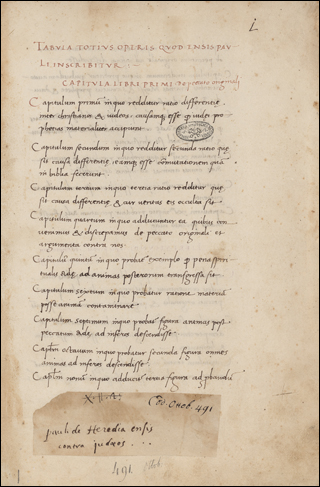 TABVLA TOTIVS OPERIS QVOD ENSIS PAV
LI INSCRIBITVR :~
CAPITVLA LIBRI PRIMI De peccato originali
Capitulum primum in quo redditur ratio differentie
inter christianos & iudeos, causamque esse quod iudei pro
phetias materialiter accipiunt
Capitulum secundum in quo redditur secunda ratio que
sit causa differentie, eamque esse commutationem quam
in biblia fecerunt
Capitulum tertium in quo tertia ratio redditur que
sit causa differentie & cur veritas eis occulta sit
Capitulum quartum in quo adducuntur ea quibus con
venimus & discrepamus de peccato originali et
argumenta contra nos
Capitulum quintum in quo probatur exemplo quod
Ade ad animas posteriorum transgressa sit
Capitulum sextum in quo probatur ratione materiam
posse animam contaminare
Capitulum septimum in quo probatur figura animas post
peccatum Ade ad inferos descendisse
Capitulum octavum in quo probatur secunda figura omnes
animas ad inferos descendisse
Capitulum nonum in quo adducitur tertia figura ad probandum
Cod. Ottob. 491
pauli de Heredia ensis
contra judaeos . . .
491